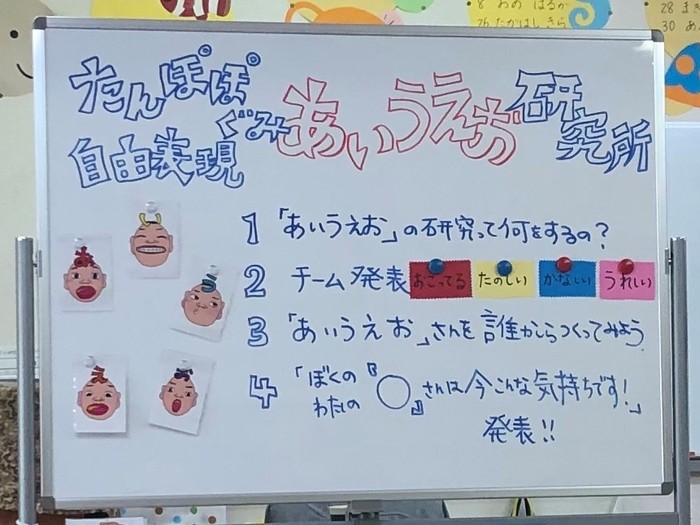 8 わの はるか
28 まき
30 あ
たんぽぽぐみ
自由表現
あいうえお研究所
1 「あいうえお」の研究って何をするの?
2 チーム発表 おこってる たのしい かなしい うれしい
3 「あいうえお」さんを誰かしらつくってみよう
4 「ぼくの わたしの『○』さんは今こんな気持ちです!」
発表!!